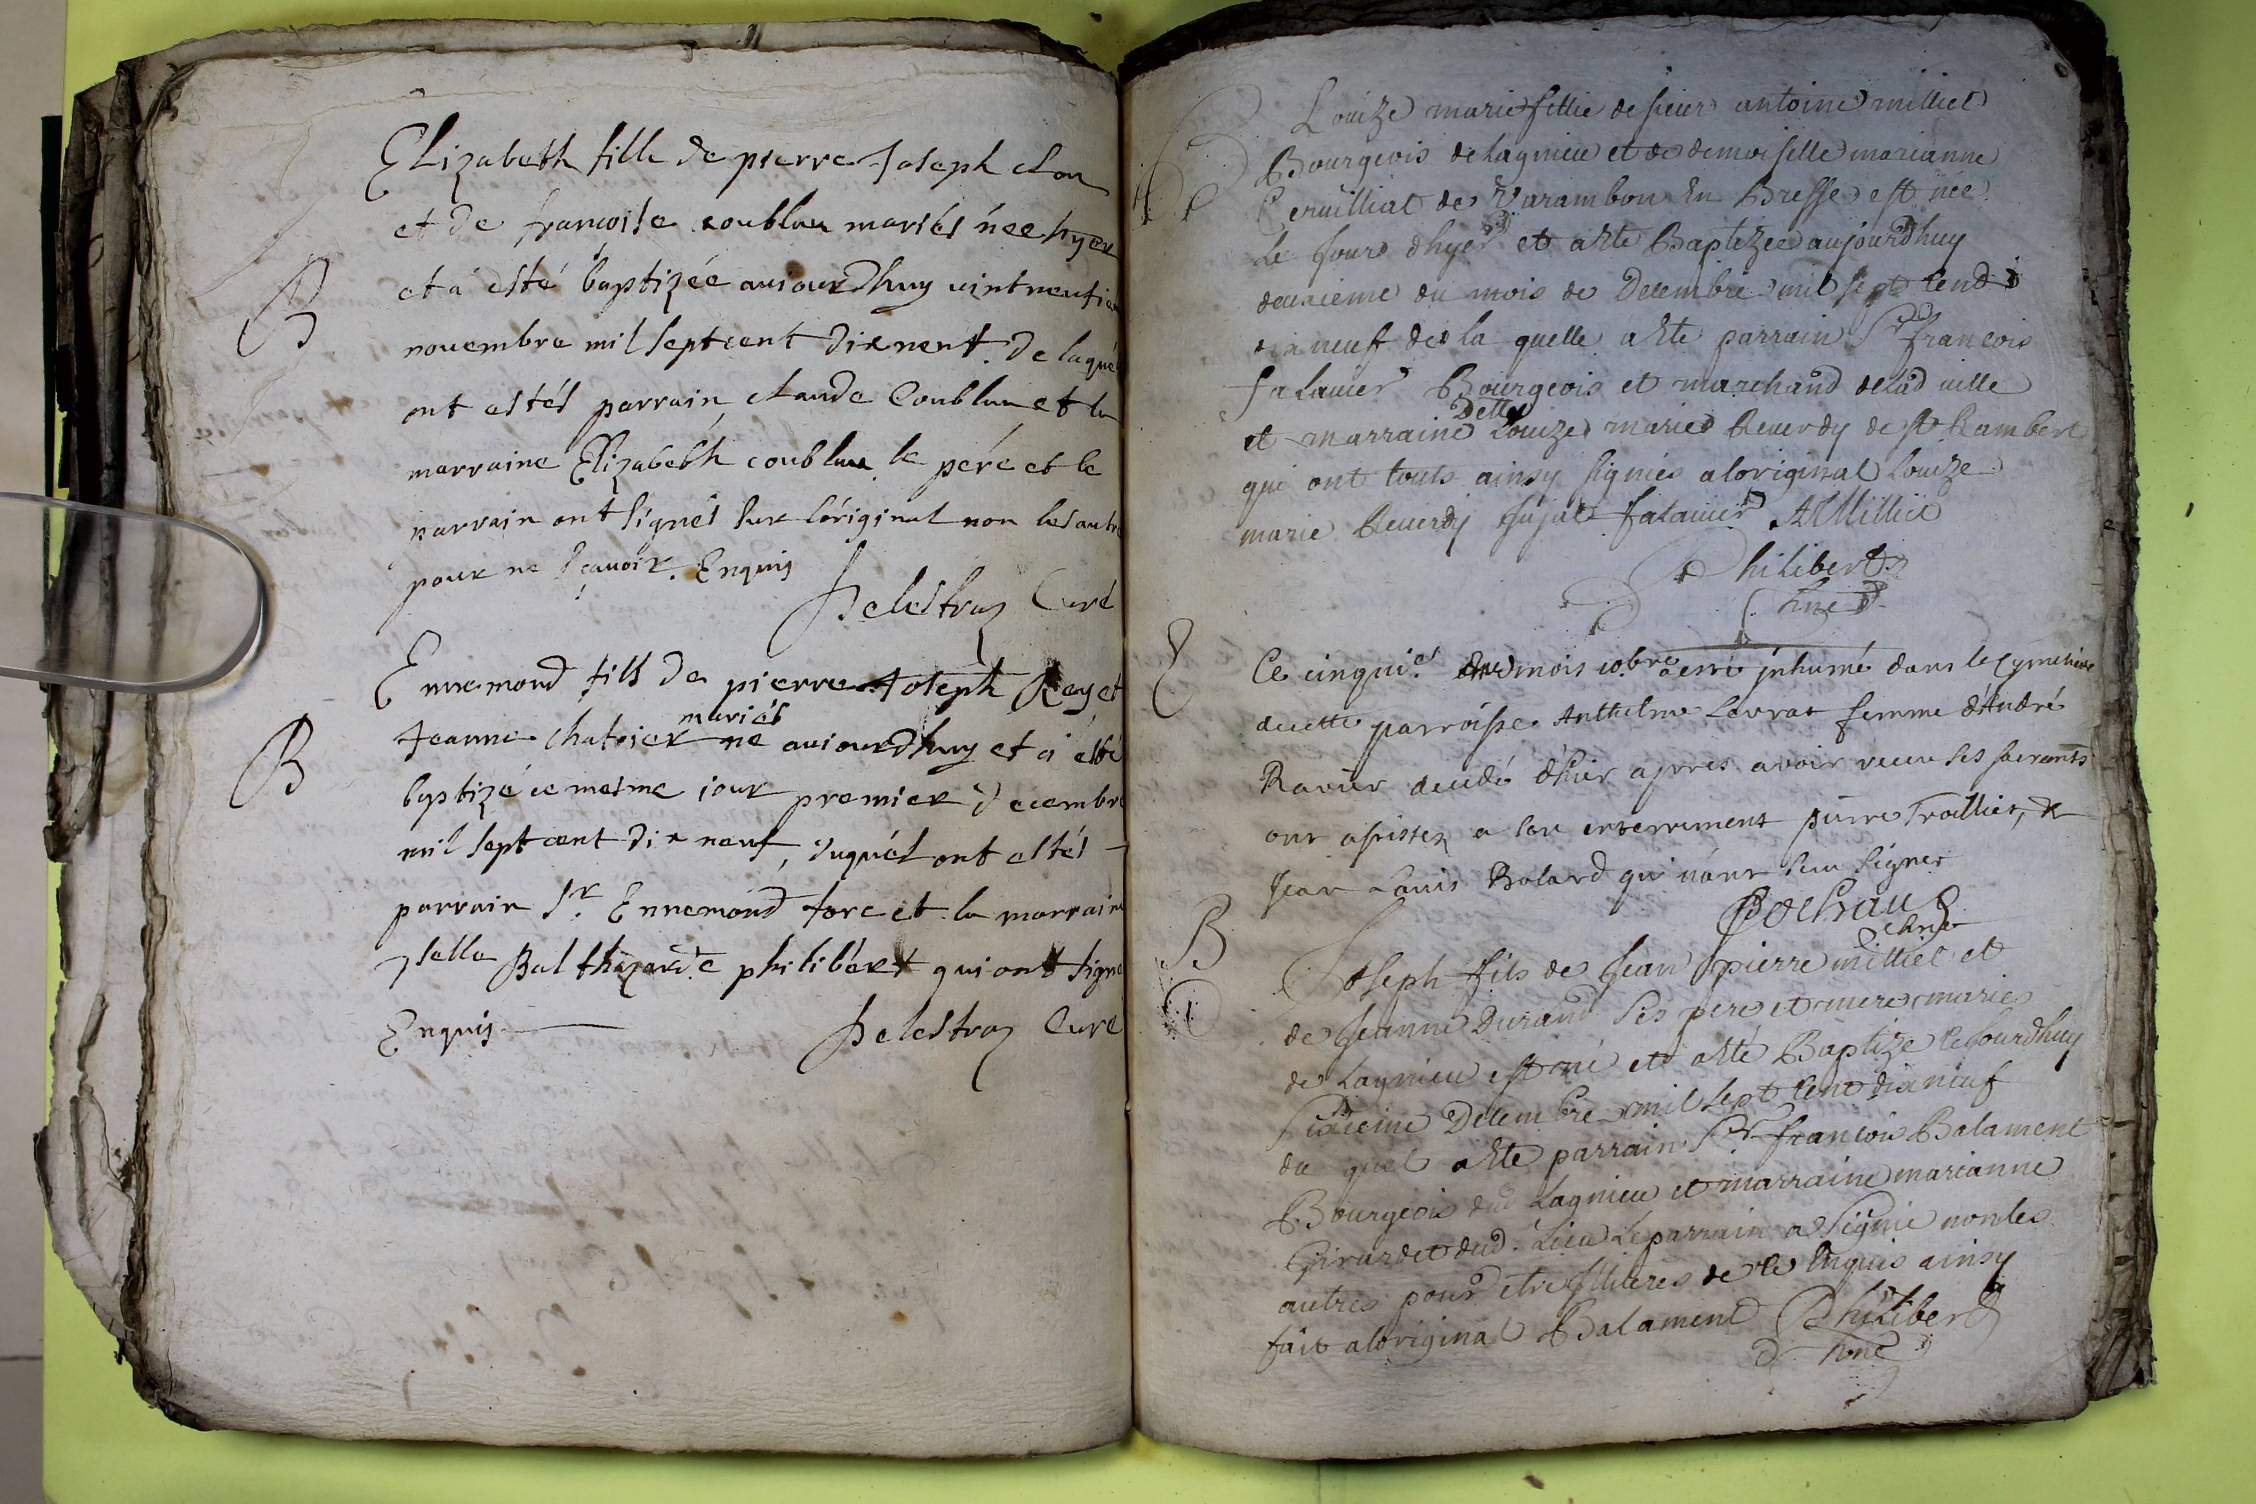 Elizabeth fille de pierre Joseph clon
et de francoise coublan mariés née hyer
B
et a esté baptizée auiourdhuy uintneufie
nouembre mil septcent dixneuf. de laquel
ont estés parrain claude Coublan et la
marraine Elizabéth coublan le pére et le
parrain ont signés sur lóriginal non les autre
pour ne sçauoir. Enquis
Delestraz Curé
Ennemond fils de pierre Joseph Rey et
mariés
Jeanne chatoier né auiourdhuy et a ésté
B
baptizé ce mesme iour premier decembre
mil septcent dix neuf, duquél ont estés
parrain Sr. Ennemond forc et la marraine
Balthazarde philibért qui ont signé
Enquis Delestraz Curé
Louize marie fillie de sieur antoine milliet
Bourgeois de lagnieu et de demoiselle marianne
B
Ceruilliat de Varambon En Bresse est née
le Jours dhyer et aste Baptizee aujourdhuy
deuxieme du mois de Decembre mil sept Cend
dix neuf de la quelle aste parrain Sr francois
falauier Bourgeois et marchand de lad uille
Delle
et marraine Louize marie Reuerdy de st Rambert
qui ont touts ainsy signiés a loriginal Louize
marie Reuerdy falauier AMilliet
Philibert
Ce cinquie. du mois xobre a esté inhumé dans le Cymetiere
decette parroisse Anthelme Lovrat femme d'André
Ravier decedé d'hier apres avoir receu les sacremts
ont assistez a son enterrement pierre Trollier, &
Jean Louis Bolard qui n'ont sceu signer
B
Joseph fils de Jean pierre milliet et
de Jeanne Durand ses pere et mere maries
de Lagnieu est né et asté Baptize cejourdhuy
sixieme Decembre mil sept Cent dix neuf
du quel aste parrain Sr. francois Balament
Bourgeois dud Lagnieu et marraine marianne
Girardet dud. Lieu Le parrain a signié non les
autres pour etre Illiteres de ce Enquis ainsy
fait a loriginal Balament Philibert